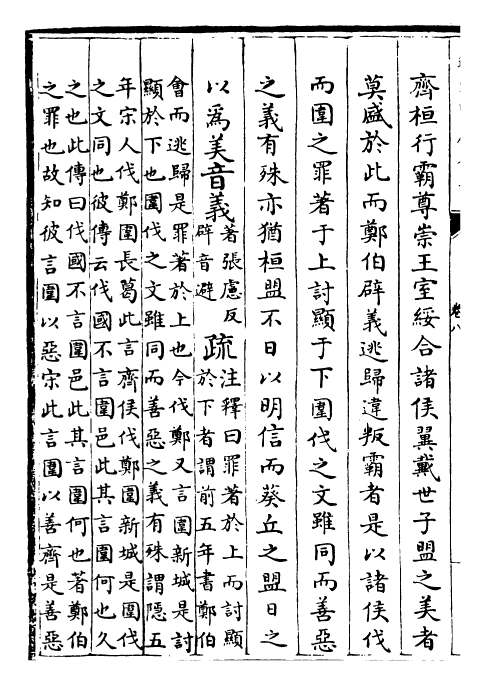 齊桓行霸尊崇王室綏合諸侯翼戴世子盟之美者
莫盛於此而鄭伯辟義逃歸違叛霸者是以諸侯伐
而圍之罪著于上討顯于下圍伐之文雖同而善惡
之義有殊亦猶桓盟不日以明信而葵丘之盟日之
以為美音義
著張慮反
辟音避
疏
注釋曰罪著於上而討顯
於下者謂前五年書鄭伯
會而逃歸是罪著於上也今伐鄭又言圍新城是討
顯於下也圍伐之文雖同而善惡之義有殊謂隱五
年宋人伐鄭圍長葛此言齊侯伐鄭圍新城是圍伐
之文同也彼傳云伐國不言圍邑此其言圍何也久
之也此傳曰伐國不言圍邑此其言圍何也著鄭伯
之罪也故知彼言圍以惡宋此言圍以善齊是善惡
卷八